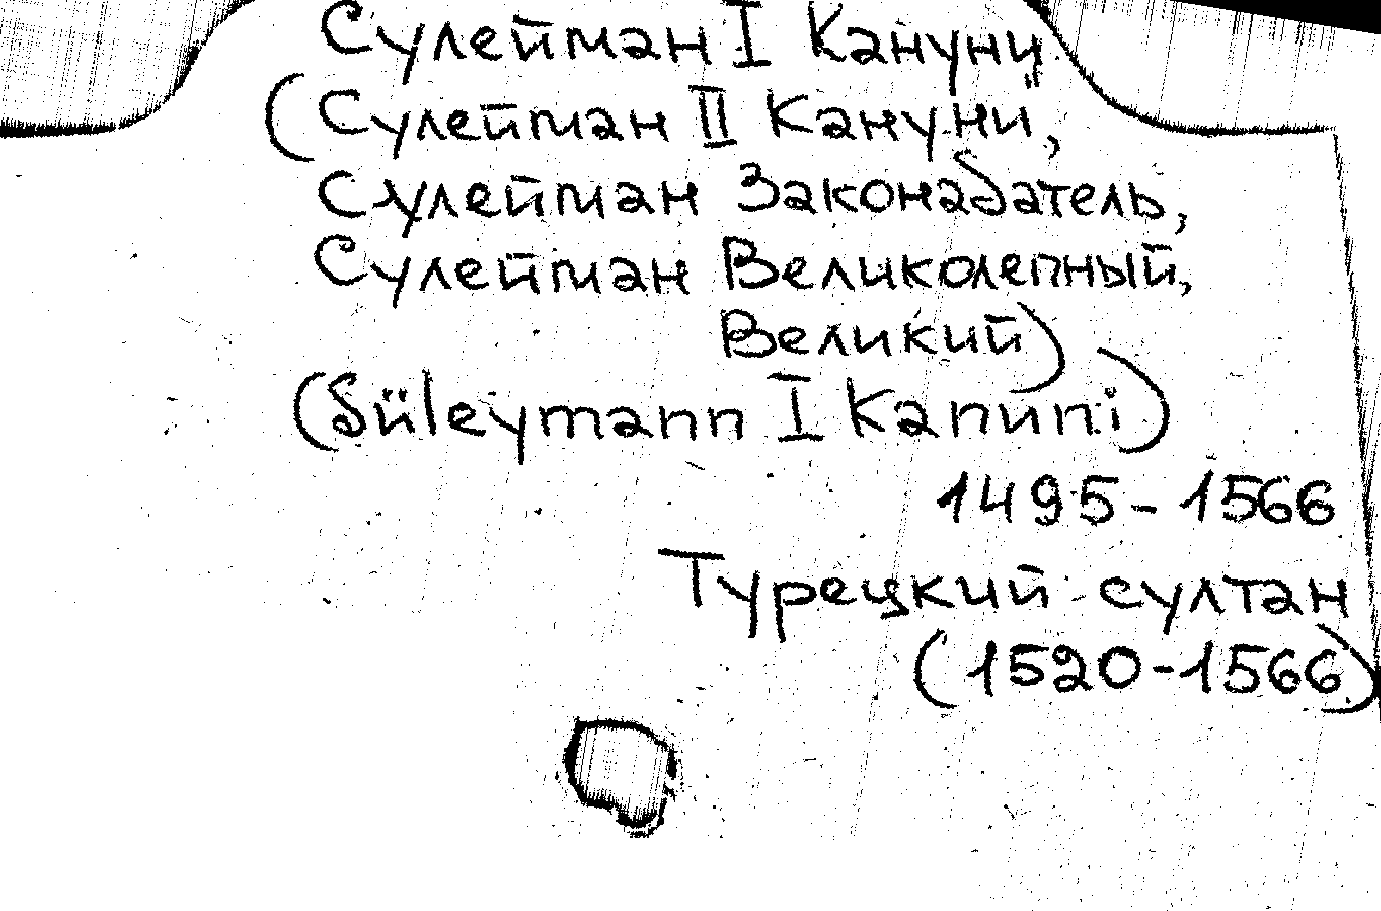 Сулейман I Кануни
(Сулейман II Кануни,
Сулейман Законодатель,
Сулейман Великолепный,
Великий)
(Süleymann I Kanuni)
1495-1566
Турецкий султан
(1520-1566)